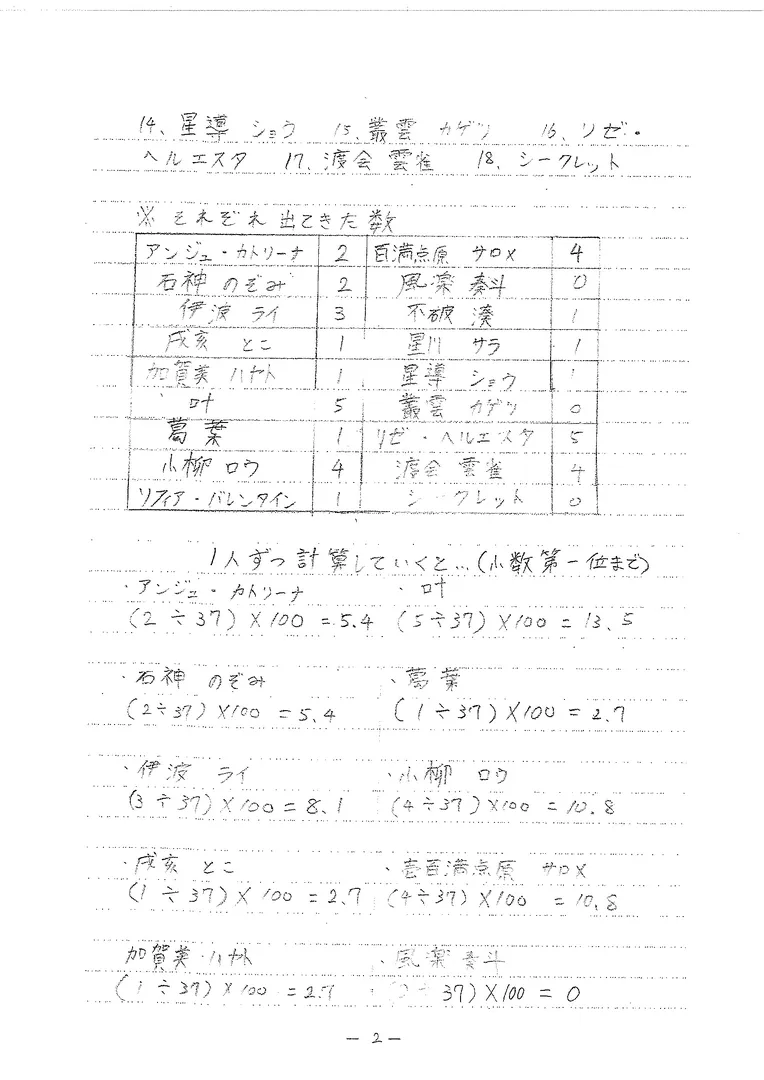 14、星導 ショウ 15、叢雲 カゲツ 16、リゼ・
ヘルエスタ 17、渡会 雲雀 18、シークレット
※ それぞれ出てきた数
アンジュ・カトリーナ 2 百満点原 サロメ 4
石神 のぞみ 2 風楽 奏斗 0
伊波 ライ 3 不破 湊 1
戌亥 とこ 1 星川 サラ 1
加賀美 ハヤト 1 星導 ショウ 1
叶 5 叢雲 カゲツ 0
葛葉 1 リゼ・ヘルエスタ 5
小柳 ロウ 4 渡会 雲雀 4
ソフィア・バレンタイン 1 シークレット 0
1人ずつ計算していくと…(小数第一位まで)
・アンジュ・カトリーナ ・叶
(2÷37)×100=5.4 (5÷37)×100=13.5
・石神 のぞみ ・葛葉
(2÷37)×100=5.4 (1÷37)×100=2.7
・伊波 ライ ・小柳 ロウ
(3÷37)×100=8.1 (4÷37)×100=10.8
・戌亥 とこ ・壱百満点原 サロメ
(1÷37)×100=2.7 (4÷37)×100=10.8
加賀美 ハヤト ・風楽 奏斗
(1÷37)×100=2.7 37)×100=0
- 2 -